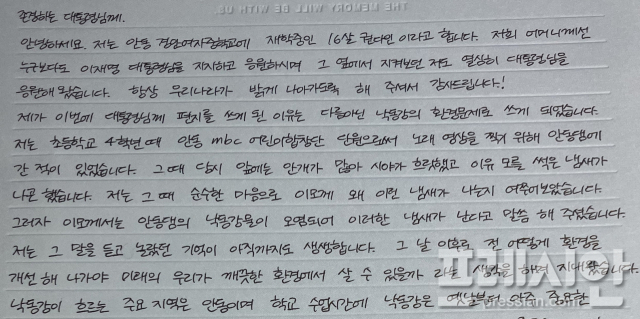 THE MEMORY WILL BE WITH US.
존경하는 대통령님께.
안녕하세요. 저는 안동 길원여자중학교에 재학중인 16살 권다인 이라고 합니다. 저희 어머니께선
누구보다도 이재명 대통령님을 지지하고 응원하시며 그 옆에서 지켜보던 저도 열심히 대통령님을
응원해 왔습니다. 항상 우리나라가 밝게 나아가도록 해 주셔서 감사드립니다!
제가 이번에 대통령님께 편지를 쓰게 된 이유는 다름아닌 낙동강의 환경문제로 쓰게 되었습니다.
저는 초등학교 4학년때 안동 mbc 어린이합창단 단원으로써 노래 영상을 찍기 위해 안동댐에
간 적이 있었습니다. 그때 당시 앞에는 안개가 많아 시야가 흐릿했고 이유 모를 썩은 냄새가
나곤 했습니다. 저는 그때 순수한 마음으로 이모께 왜 이런 냄새가 나는지 여쭈어보았습니다.
그러자 이모께서는 안동댐의 낙동강물이 오염되어 이러한 냄새가 난다고 말씀 해 주셨습니다.
저는 그 말을 듣고 놀랐던 기억이 아직까지도 생생합니다. 그 날 이후로 전 어떻게 환경을
개선 해 나가야 미래의 우리가 깨끗한 환경에서 살 수 있을까 라는 생각을 하며 지내왔습니다.
낙동강이 흐르는 주요 지역은 안동이며 학교 수업시간에 낙동강은 옛날부터 아주 중요한
프레시안
pressian.com